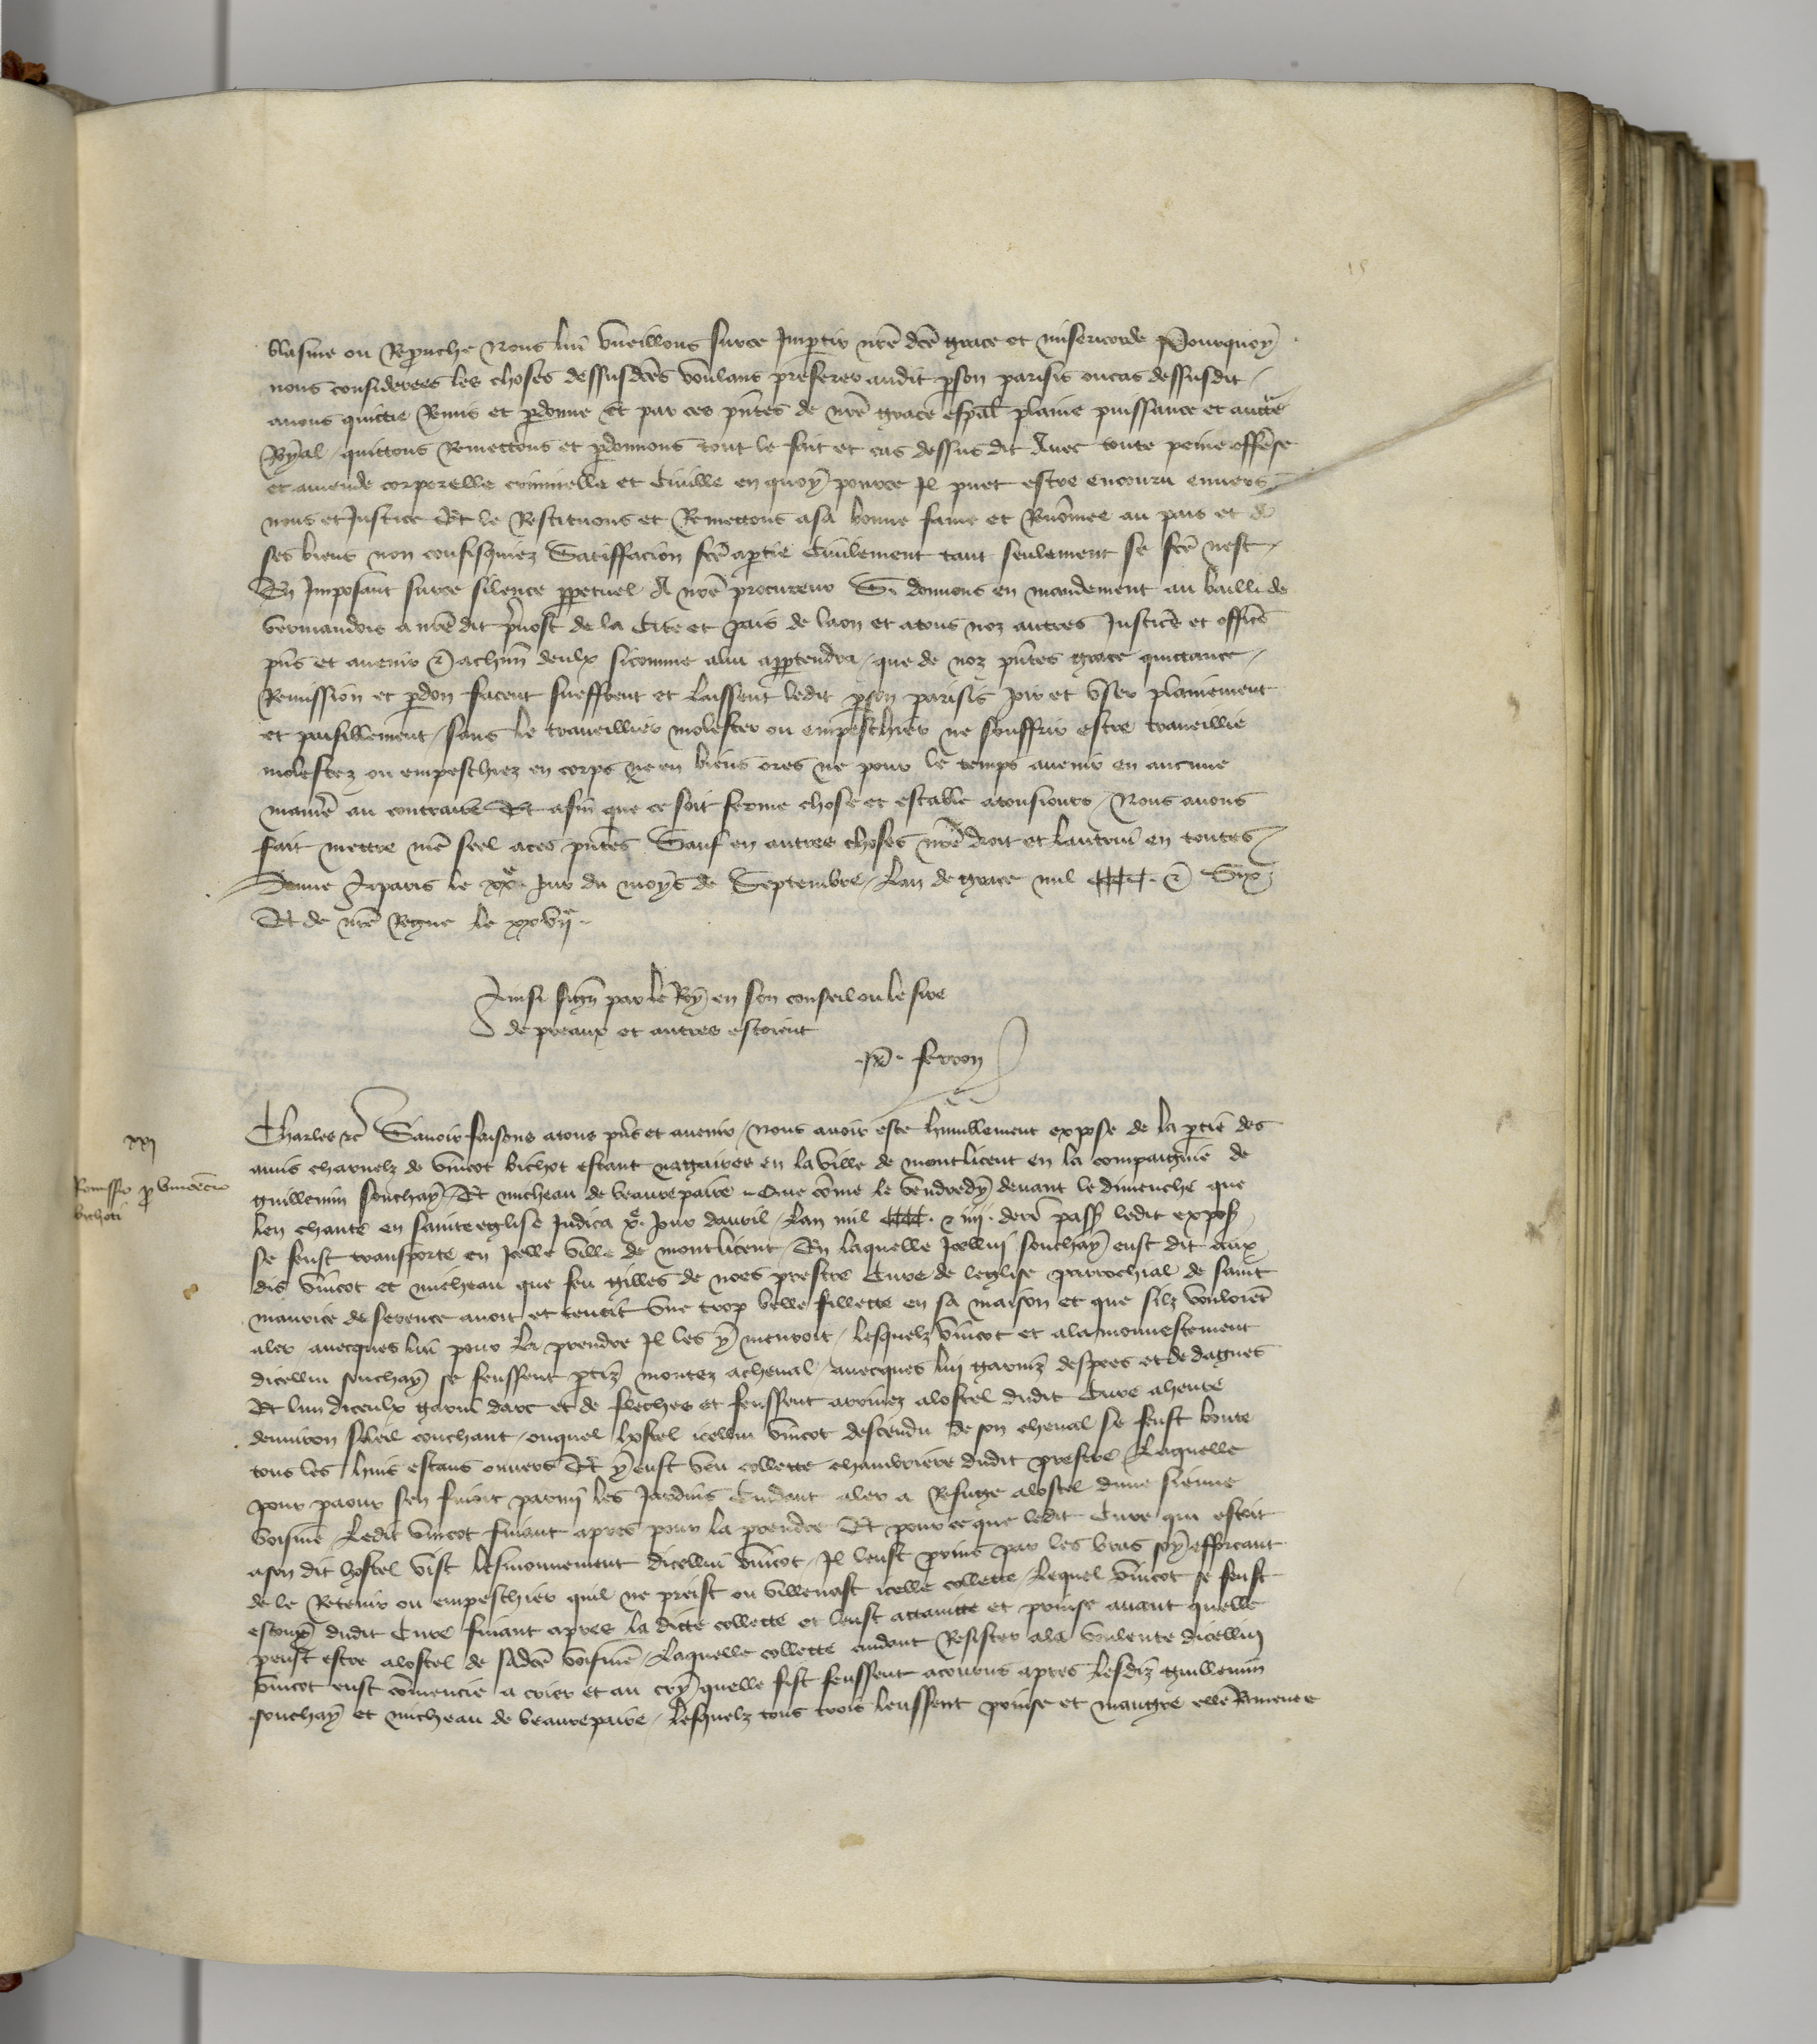 15
blasme ou Reprouche Nous lui vueillons surce Impartir nre dce grace et misericorde Pourquoy
nous considerees les choses dessusdces voulans preferer audit prson parisis oucas dessusdit
auons quittie Remis et pdonne Et par ces pntes de nre grace espal plaine puissance et aucte
Royal quittons Remettons et pdonnons tout le fait et cas dessus dit Auec toute peine offense
et amende corporelle criminelle et Ciuille en quoy pource Il puet estre encouru enuers
nous et Justice Et le Restituons et Remettons asa bonne fame et Renomee au pais et a
ses biens non confisquiez Satiffacion fce aptie Ciuilement tant seulement se fce nest
En Imposant surce silence ppetuel A nre procureur Si donnons en mandement au bailli de
vermandois a nre dit pruost de la Cite et pais de laon et atous noz autres Justice et office
pns et auenir & achun deulx sicomme alui apptendra que de noz pntes grace quittance
Remission et pdon facent sueffrent et laissent ledit prson parisis joir et vser plainement
et paisiblement sans le traueillier molester ou empeschier ne souffrir estre traueillie
molestez ou empeschiez en corps ne en biens ores ne pour le temps auenir en aucune
maniere au contraire Et afin que ce soit ferme chose et estable atousiours Nous auons
fait mettre nre seel aces pntes Sauf en autres choses nre droit et lautrui en toutes
Donne Aparis le xxe Jour du moys de Septembre Lan de grace mil CCCC & Six
Et de nre Regne le xxvije
Ainsi sign par le Roy en son conseil ou le sire
de preaux et autres estoient
ferron
xxj
Remissio p vincencio
bichoti
Charles &c Sauoir faisons atous pns et auenir nous auoir este humblement expose de la ptie des
amis charnelz de vincot bichot estant nagaires en la ville de montlicent en la compaignie de
guillemin souchay Et micheau de beaurepaire Que come le vendredy deuant le dimenche que
len chante en sainte eglise Judica xe Jour dauril Lan mil CCCC & iiij derr pass ledit expos
se feust transporte en Icelle ville de montlicent En laquelle Icellui souchay eust dit aux
dis vincot et micheau que feu gilles de noes prestre Cure de leglise parrochial de saint
maurice de serence auoit et tenoit vne trop belle fillette en sa maison et que silz vouloiet
aler auecques lui pour la prendre Il les y menroit Lesquelz vincot et alamonnestement
dicellui souchay se feussent ptiz montez acheual auecques lui garniz despees et de dagues
Et lun diceulx garni darc et de fleches et feussent arriuez alostel dudit Cure aheure
denuiron soleil couchant ouquel hostel icellui vincot descendu de son cheual se feust boute
tous les huis estans ouuers Et y eust veu collette chambriere dudit prestre Laquelle
pour paour sen fuioit parmi les Jardins Cuidant aler a Refuge alostel dune sienne
voisine Ledit vincot fuiant apres pour la prendre Et pource que ledit Cure qui estoit
ason dit hostel vist lesmouuement dicellui vincot Il leust prins par les bras soy efforcant
de le Retenir ou empeschier quil ne preist ou villenast icelle collette Lequel vincot se feust
escoux dudit Cure fuiant apres la dicte collette et leust attaintte et prinse auant quelle
peust estre alostel de sadce voisine Laquelle collette cuidant Resister ala voulente dicellui
vincot eust comencie a crier et au cry quelle fist feussent acourus apres lesdiz guillemin
souchay et micheau de beaurepaire Lesquelz tous trois leussent prinse et maugre elle Amenee